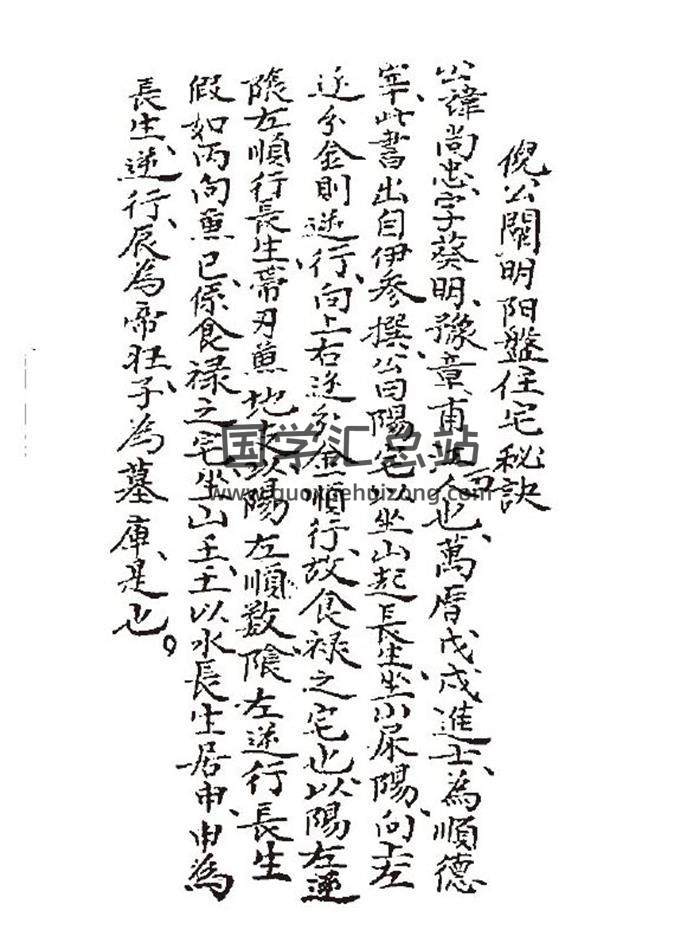 倪公闢明阳盤住宅秘訣
公諱尚忠、字葵明、豫章甫人也、萬曆戊戌進士、為順德
宰、此書出自伊參撰、公曰陽宅以坐山起長生、坐山屎陽、向上左
逆分金則逆行、向上右逆分金順行、故食祿之宅也、以陽左逆
陰左順行長生帝刃萬地支、以陽左順数、陰左逆行長生
假如丙向兼巳、係食禄之宅、坐山壬、壬以水長生居申、申為
長生、逆行、辰為帝旺、子為墓庫、是也。
国学汇总站
www.guoxuehuizong.com